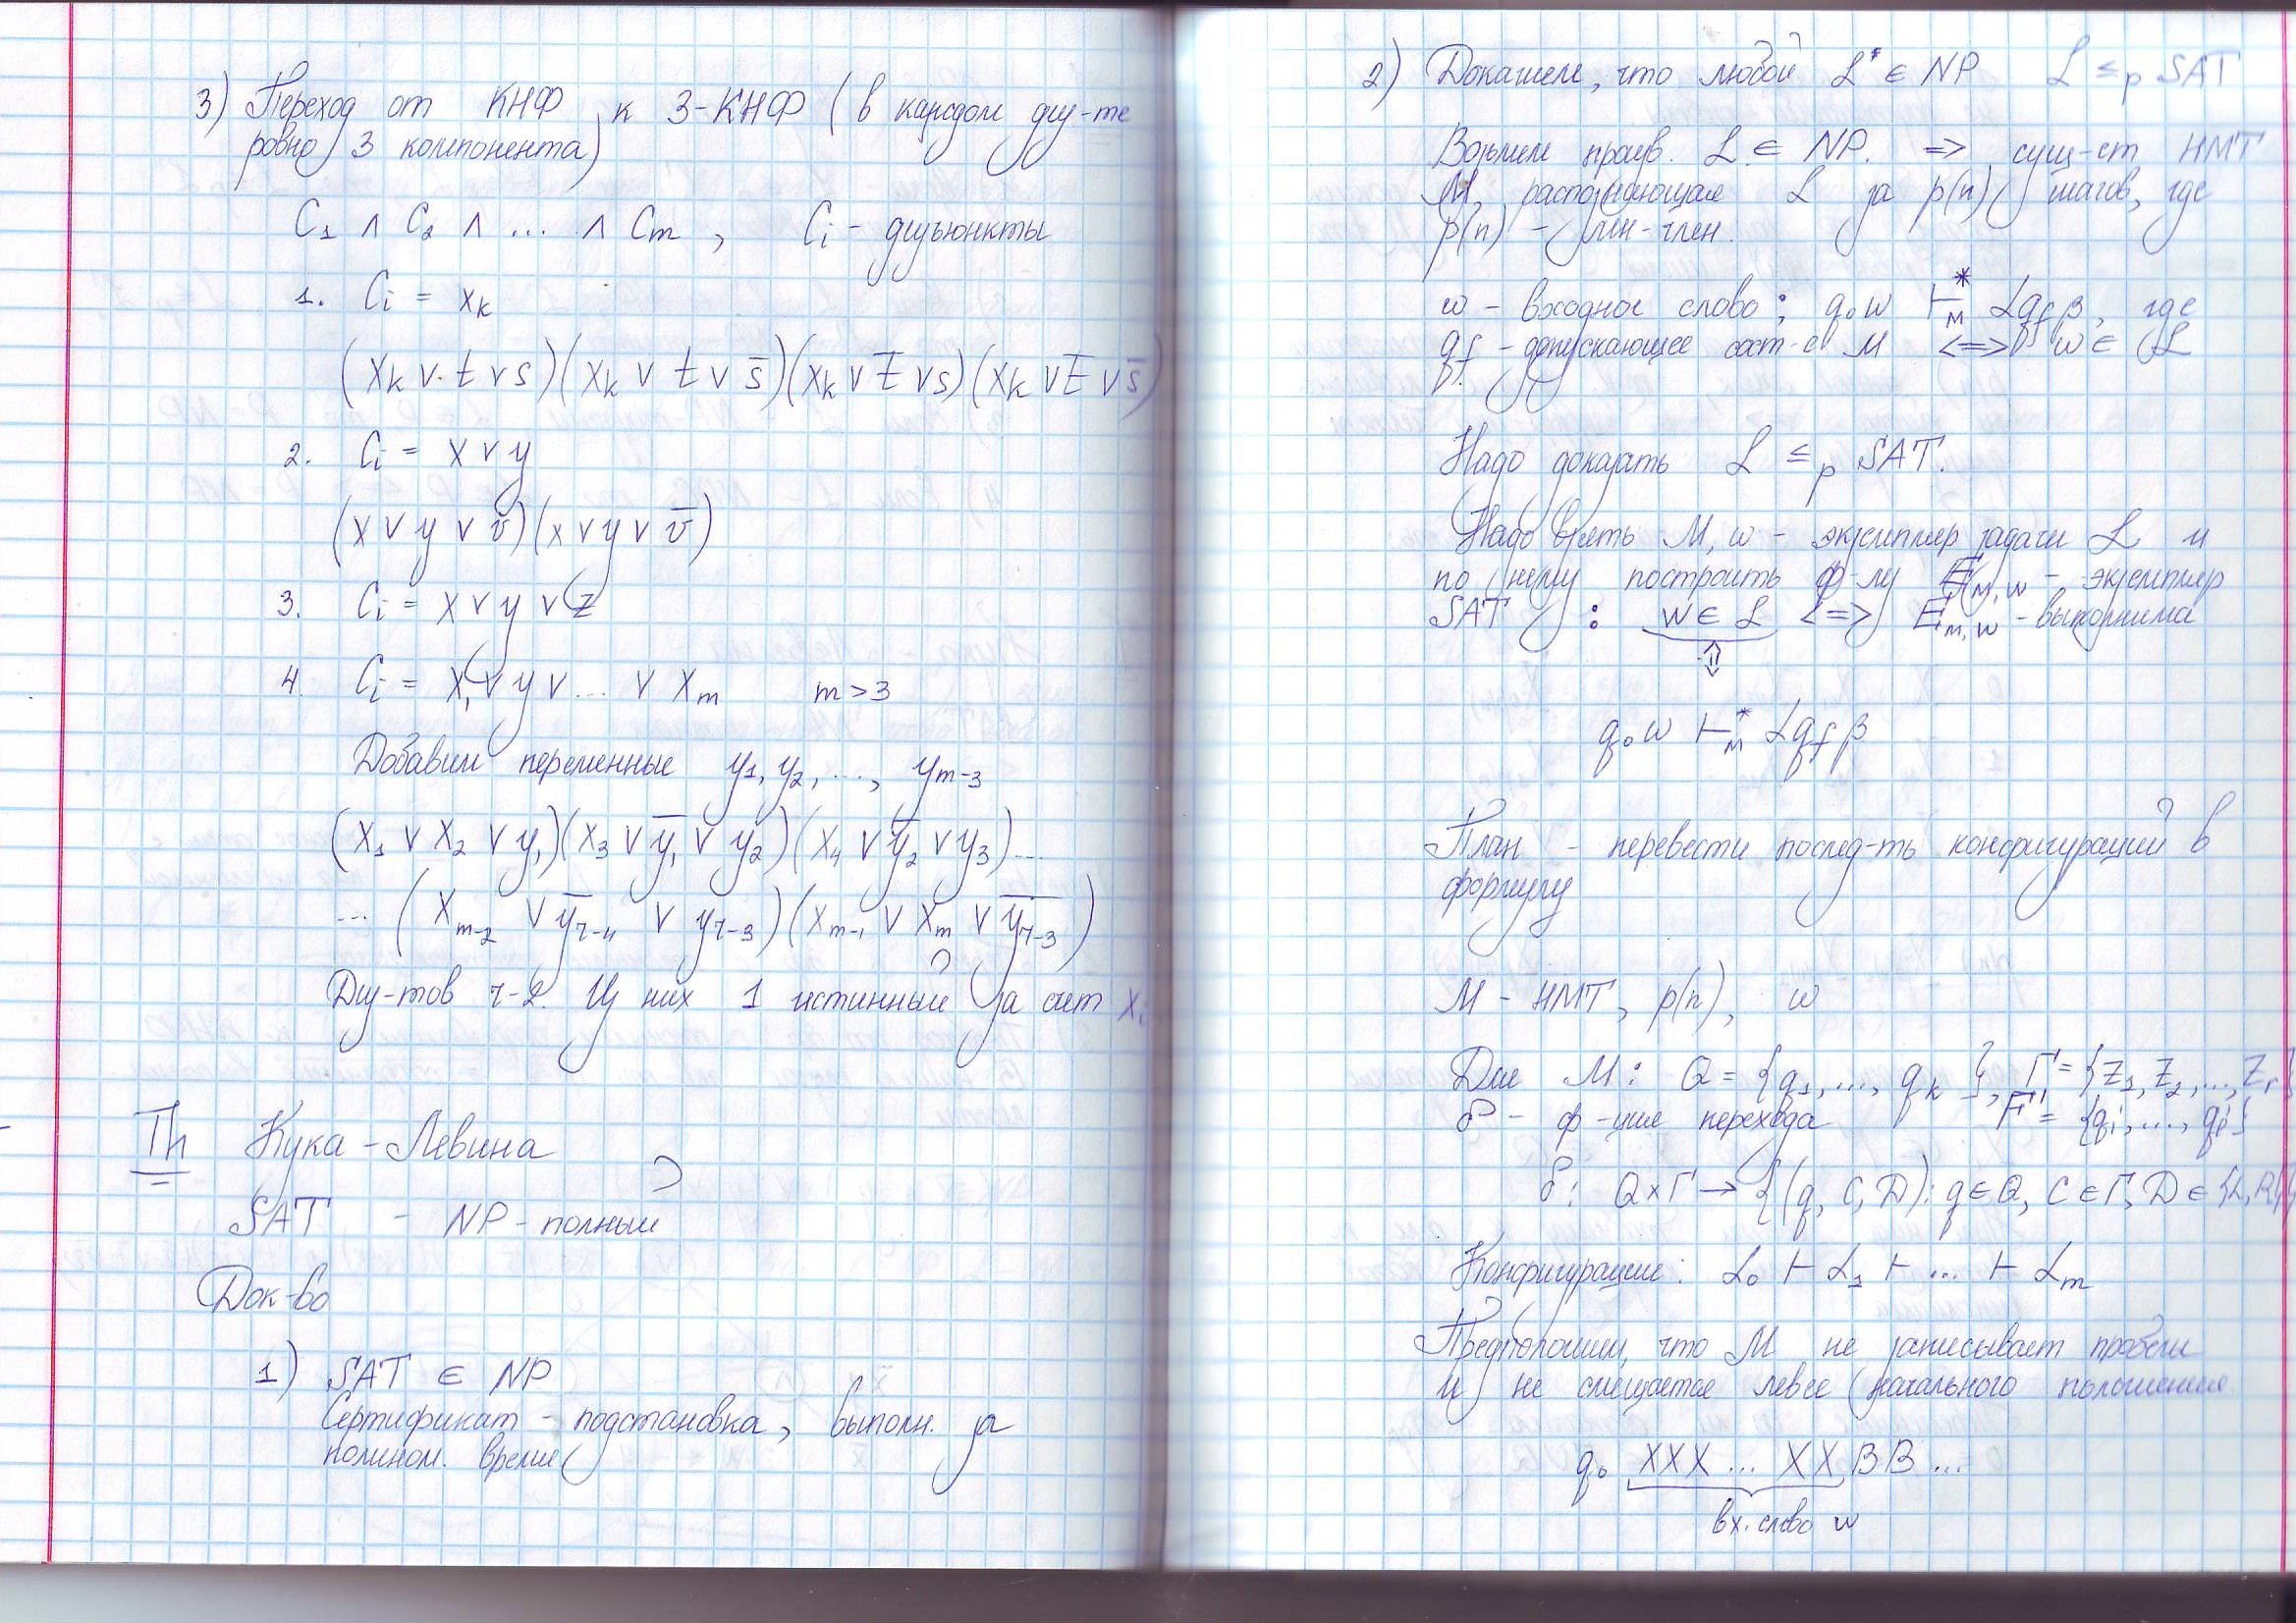 3) Переход от КНФ к 3-КНФ (в каждом диз-те
ровно 3 компонента)
C₁ ∧ C₂ ∧ ... ∧ Cm , Ci - дизъюнкты
1. Ci = xk
(xk ∨ t ∨ s)(xk ∨ t ∨ s̅)(xk ∨ t̅ ∨ s)(xk ∨ t̅ ∨ s̅)
2. Ci = x ∨ y
(x ∨ y ∨ v)(x ∨ y ∨ v̅)
3. Ci = x ∨ y ∨ z
4. Ci = x₁ ∨ y ∨ ... ∨ xm m > 3
Добавим переменные y₁, y₂, ..., ym-3
(x₁ ∨ x₂ ∨ y₁)(x₃ ∨ y̅₁ ∨ y₂)(x₄ ∨ y̅₂ ∨ y₃)...
... (xm-2 ∨ y̅r-4 ∨ yr-3)(xm-1 ∨ xm ∨ y̅r-3)
Диз-тов r-2. Из них 1 истинный за счет xi
Th Кука - Левина
SAT - NP - полный
Док-во
1) SAT ∈ NP
Сертификат - подстановка, выполн. за
полином. время
2) Докажем, что любой L ∈ NP L ≤p SAT
Возьмем произв. L ∈ NP. => сущ-ет НМТ
M, распознующая L за p(n) шагов, где
p(n) - мн-член.
w - входное слово; q₀w ⊢*M αqfβ, где
qf - допускающее сост-е M <=> w ∈ L
Надо доказать L ≤p SAT.
Надо взять M, w - экземпляр задачи L и
по нему построить ф-лу EM,w - экземпляр
SAT : w ∈ L <=> EM,w - выполнима
⇕
q₀w ⊢*M αqfβ
План - перевести послед-ть конфигураций в
формулу
M - НМТ, p(n), w
Для M: Q = {q₁, ..., qk}, Γ = {Z₁, Z₂, ..., Zr}
δ - ф-ция перехода F = {qi, ..., qℓ}
δ: Q×Γ → {(q, C, D): q ∈ Q, C ∈ Γ, D ∈ {L, R}}
Конфигурации: α₀ ⊢ α₁ ⊢ ... ⊢ αm
Предположим, что M не записывает пробелы
и не смещается левее начального положения
q₀ XXX ... XX BB ...
вх. слово w